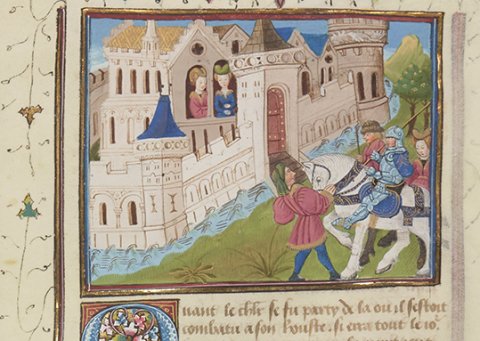 Quant le chlr se fu party de la ou il sestoit
combatu a son houste. si erra tout le io⁹.